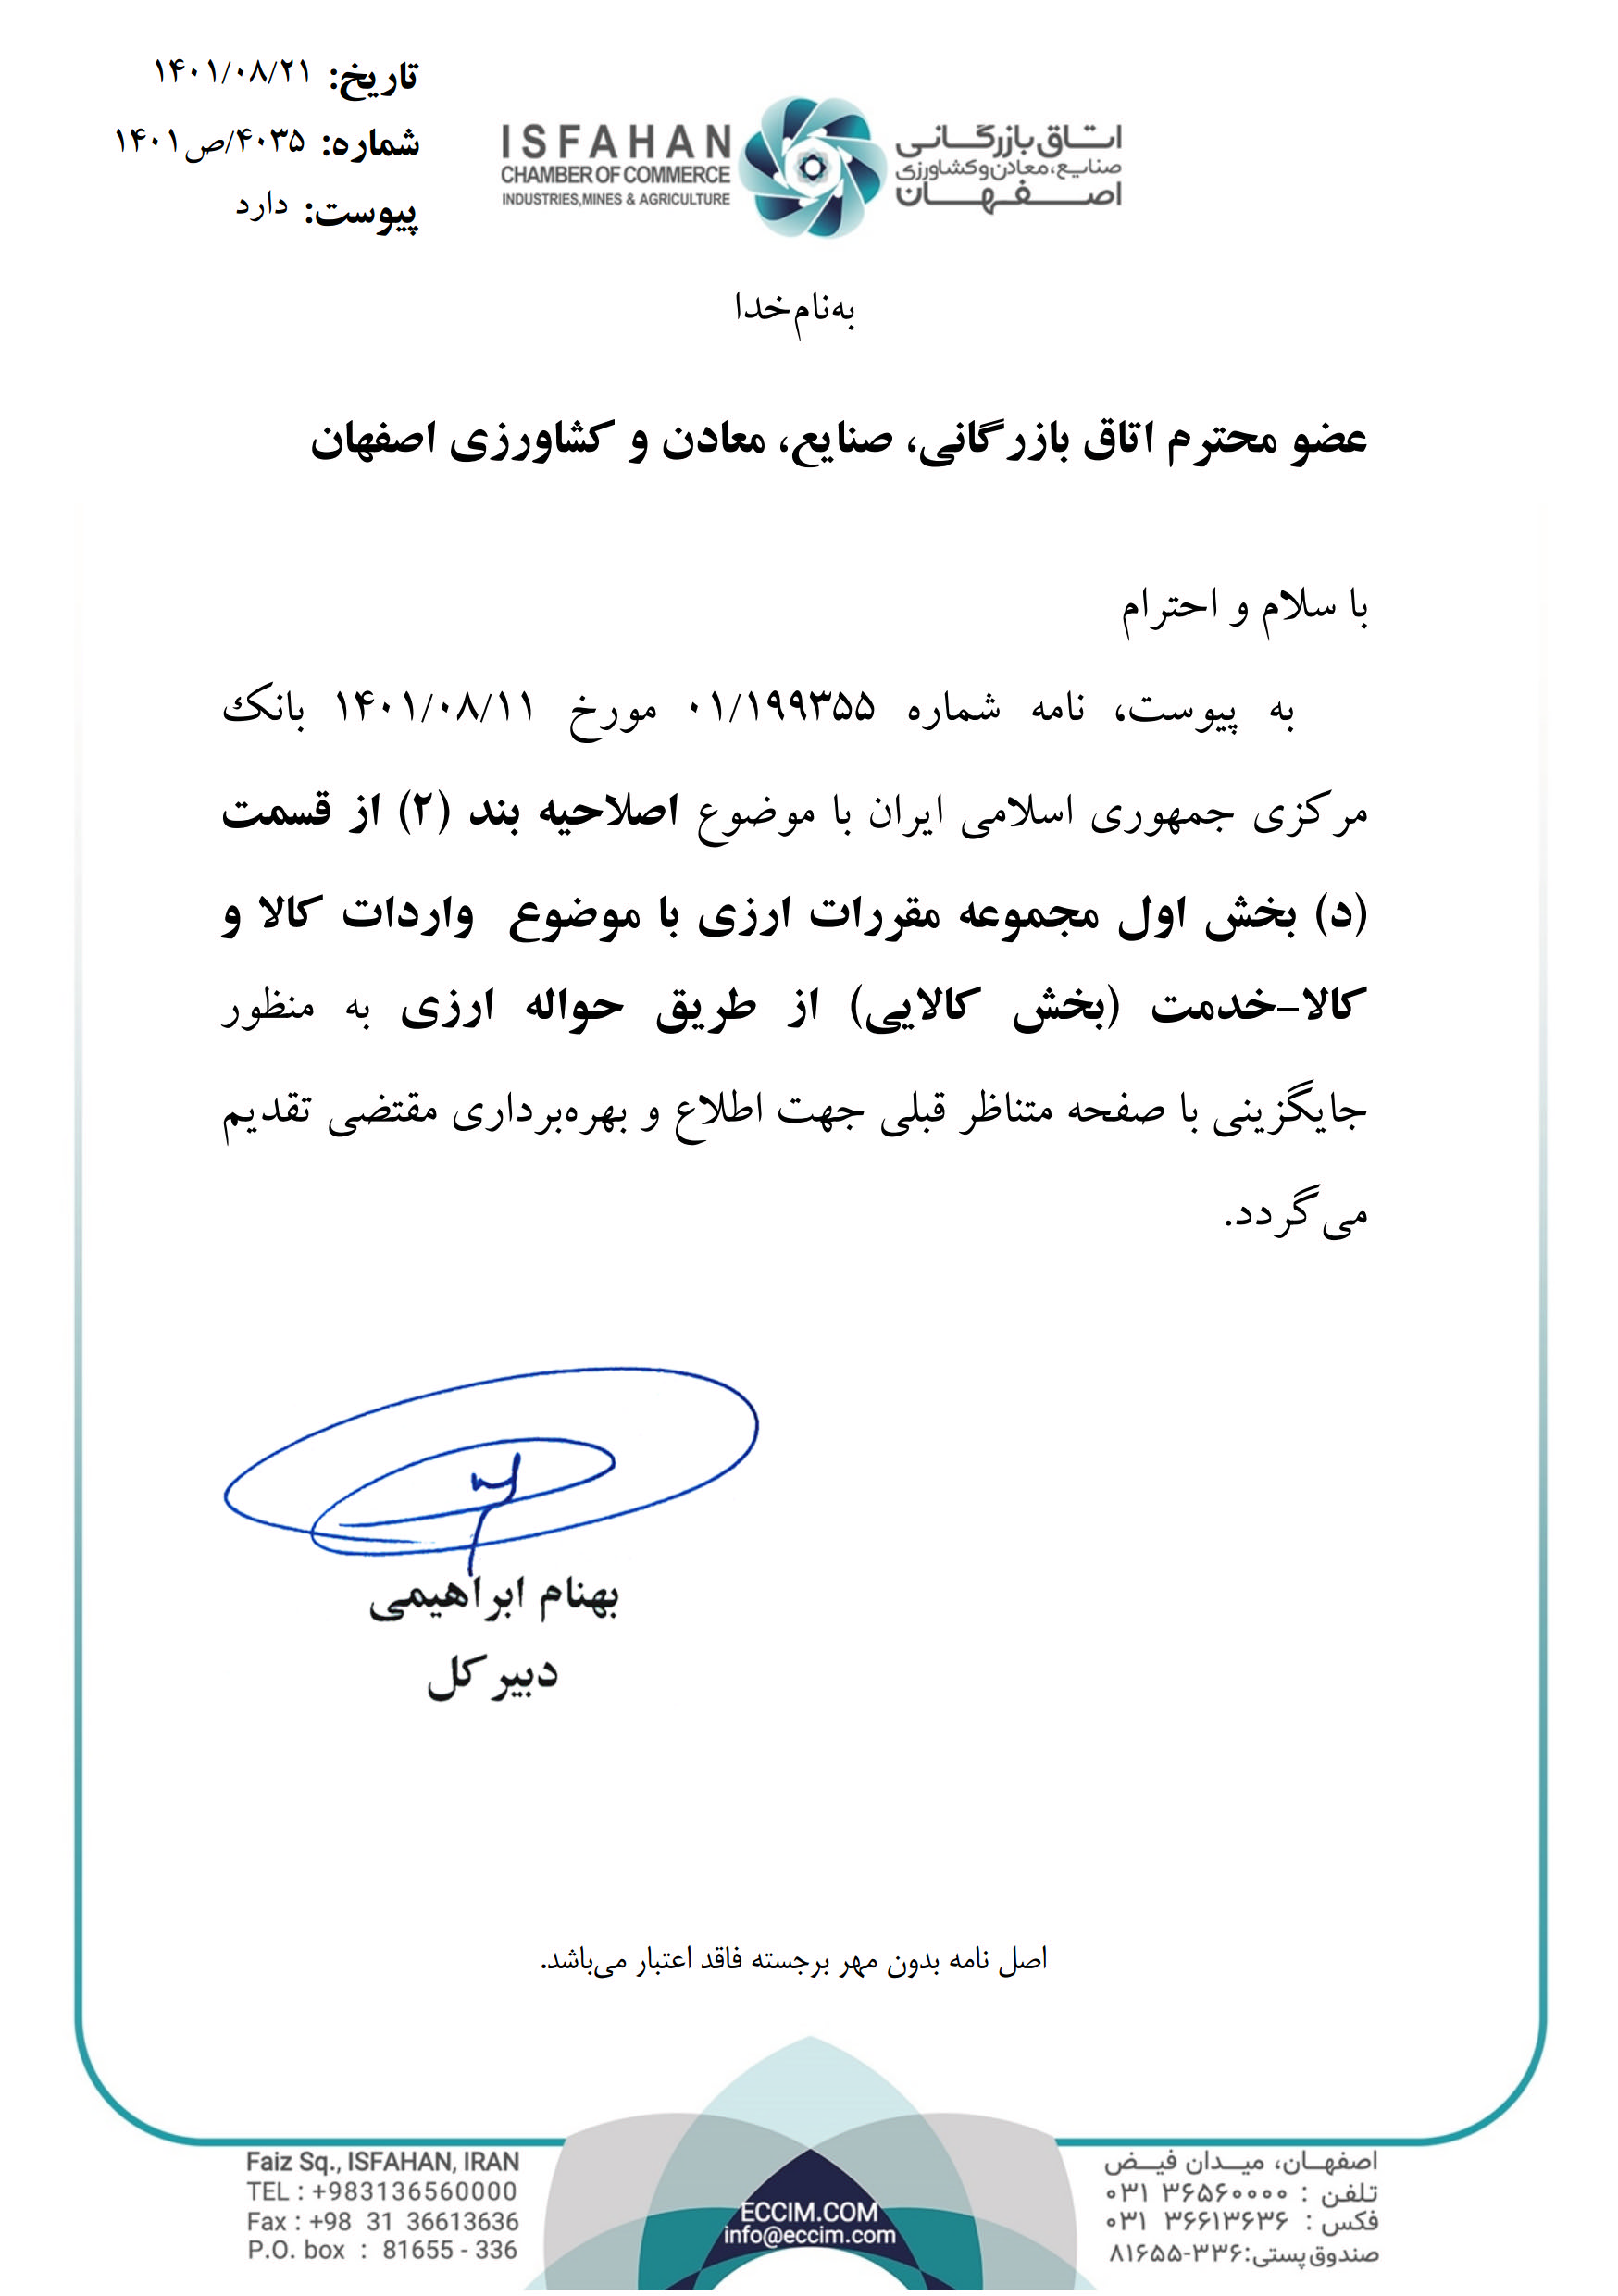 تاریخ: ۱۴۰۱/۰۸/۲۱
شماره: ۴۰۳۵/ص۱۴۰۱
پیوست: دارد
ISFAHAN
CHAMBER OF COMMERCE
INDUSTRIES,MINES & AGRICULTURE
اتاق بازرگانی
صنایع، معادن و کشاورزی
اصفهان
به‌نام‌خدا
عضو محترم اتاق بازرگانی، صنایع، معادن و کشاورزی اصفهان
با سلام و احترام
به پیوست، نامه شماره ۰۱/۱۹۹۳۵۵ مورخ ۱۴۰۱/۰۸/۱۱ بانک
مرکزی جمهوری اسلامی ایران با موضوع اصلاحیه بند (۲) از قسمت
(د) بخش اول مجموعه مقررات ارزی با موضوع واردات کالا و
کالا-خدمت (بخش کالایی) از طریق حواله ارزی به منظور
جایگزینی با صفحه متناظر قبلی جهت اطلاع و بهره‌برداری مقتضی تقدیم
می‌گردد.
بهنام ابراهیمی
دبیر کل
اصل نامه بدون مهر برجسته فاقد اعتبار می‌باشد.
Faiz Sq., ISFAHAN, IRAN
TEL : +983136560000
Fax : +98 31 36613636
P.O. box : 81655 - 336
ECCIM.COM
info@eccim.com
اصفهـان، میـدان فیـض
تلفن : ۳۶۵۶۰۰۰۰ ۰۳۱
فکس : ۳۶۶۱۳۶۳۶ ۰۳۱
صندوق پستی: ۸۱۶۵۵-۳۳۶